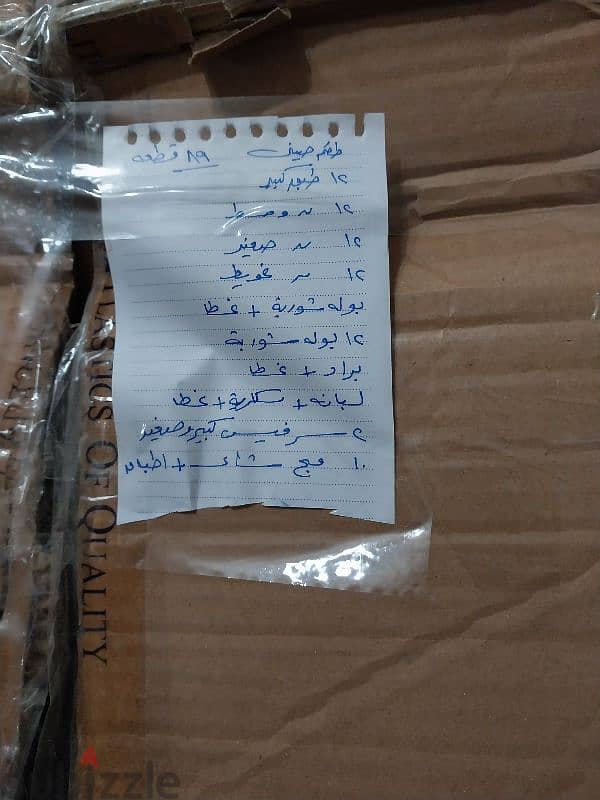 طقم صينى ٨٩ قطعه
١٢ طبق كبير
١٢ // وسط
١٢ // صغير
١٢ // غويط
بوله شوربة + غطا
١٢ بوله شوربة
براد + غطا
لبانه + سكرية + غطا
٢ سرفيس كبير وصغير
١٠ مج شاى + اطباق
PLASTICS OF QUALITY
dubizzle